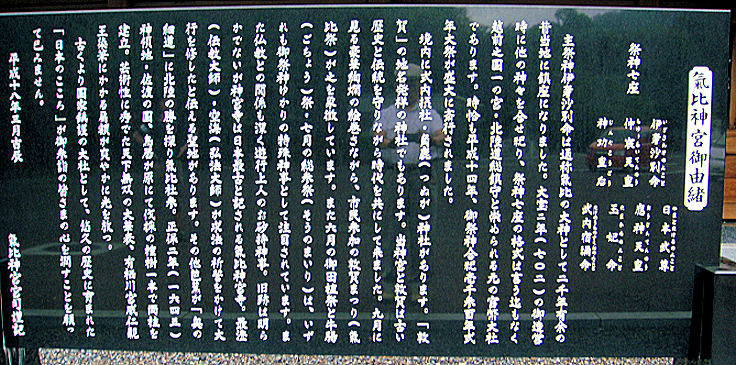 氣比神宮御由緒
祭神七座
伊奢沙別命
仲哀天皇
神功皇后
日本武尊
應神天皇
玉妃命
武内宿禰命
主祭神伊奢沙別命は通称氣比の大神として二千年有余の
昔当地に鎮座になりました。大宝二年(七〇二)の御造営
時に他の神々を合せ祀り、祭神七座の格式は言う迄もなく
越前之國一の宮・北陸道総鎮守と崇められる元の官幣大社
であります。時恰も平成十四年、御祭神合祀壱千参百年式
年大祭が盛大に斎行されました。
境内に式内摂社・角鹿(つぬが)神社があります。「敦
賀」の地名発祥の神社でもあります。当神宮と敦賀は古い
歴史と伝統を守りながら時代を共にして来ました。九月に
見る豪華絢爛の絵巻さながら、市民参加の敦賀まつり(氣
比祭)が之を象徴しています。また六月の御田植祭と牛腸
(ごちょう)祭・七月の総参祭(そうのまいり)は、いず
れも御祭神ゆかりの特殊神事として注目されています。ま
た仏教との関係も深く遊行上人のお砂持神事、旧跡は明ら
かでないが神宮寺は日本最古と記される氣比神宮寺。最澄
(伝教大師)・空海(弘法大師)が求法の所誓をかけて大
行を修したと伝える聖地があります。その他芭蕉が「奥の
細道」に北陸の勝を探り氣比社参。正保二年(一六四五)
神領地・佐渡の國鳥居ヶ原にて伐採の榁樹一本で両柱を
建立。芸術性に秀でた天下無双の大華表。有栖川宮威仁親
王染筆にかかる扁額が爽やかに光を放つ。
古くより國家鎮護の大社として、越人の歴史に育まれた
「日本のこころ」が御参詣の皆さまの心を潤すことを願っ
て已みません。
平成十八年三月吉辰
氣比神宮宮司謹記